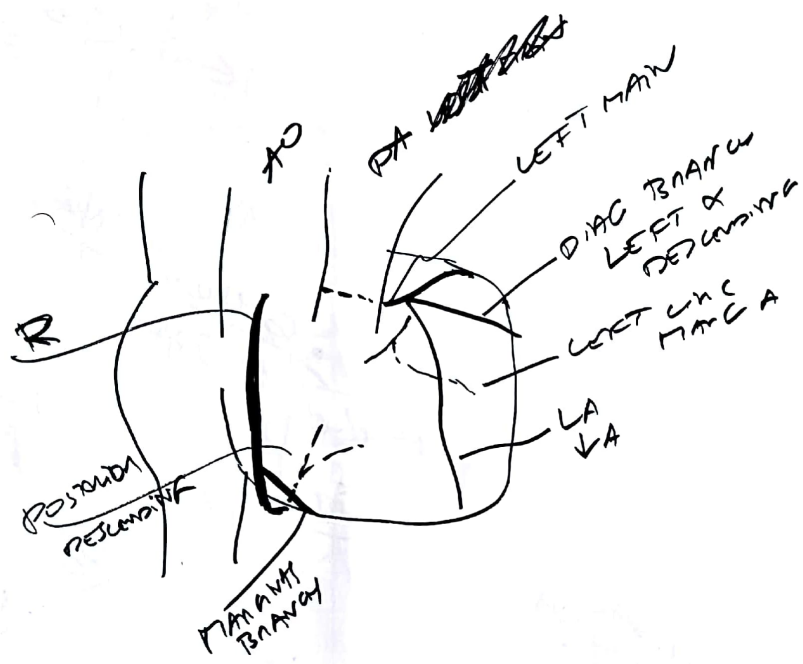 AO
PA
LEFT MAIN
DIAG BRANCH
LEFT &
DESCENDING
LEFT CIRC
MARG A
LA
↓A
R
POSTERIOR
DESCENDING
MARGINAL
BRANCH